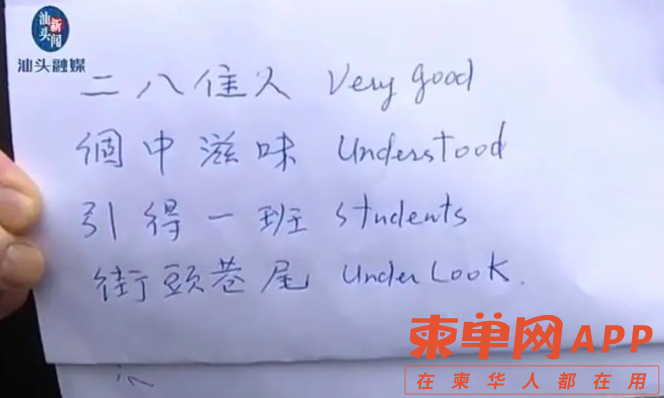 汕头
新闻
汕头融媒
二八佳人 Very good
個中滋味 Understood
引得一班 students
街頭巷尾 Under Look.
柬单网APP
在柬华人都在用